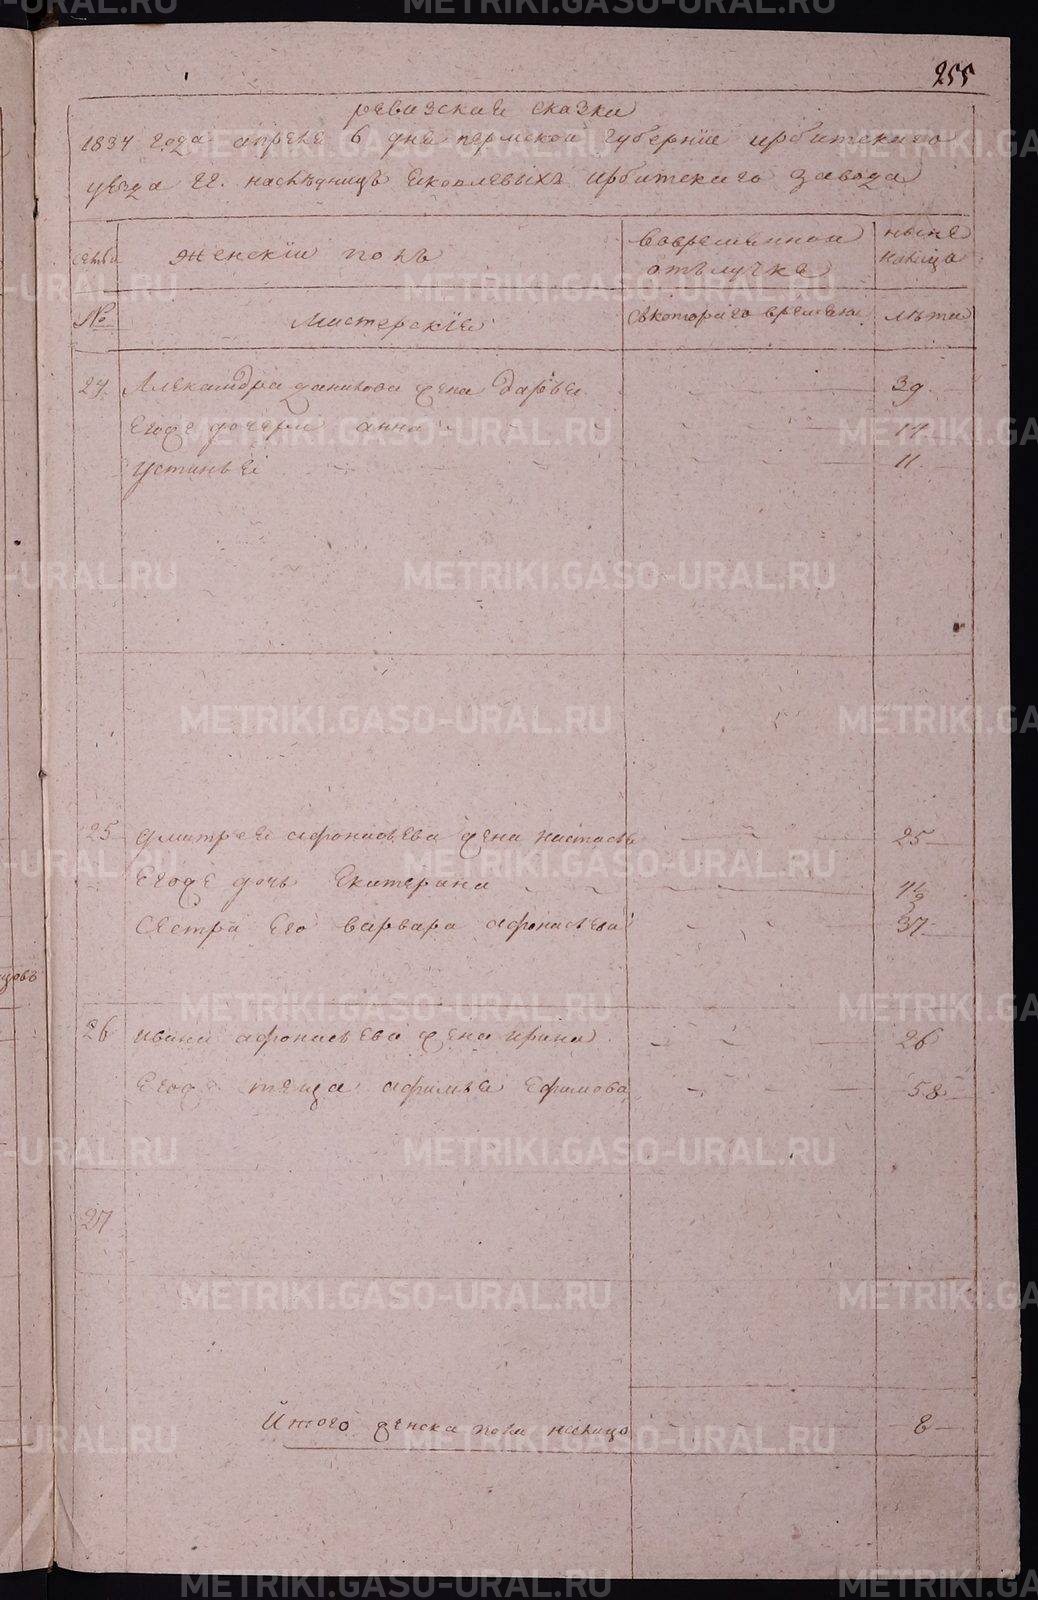 255
ревизские сказки
1834 года апреля 6 дня пермской губернiе ирбитскаго
уезда гг. наследницъ Яковлевыхъ ирбитскаго завода
семьи
женскiй полъ
вовременной
отълучке
ныне
налицо
№
Мастерскiе
скотораго времени
лета
24 Александра данилова жена дарья 39
Егоже дочери анна 14
устинья 11
25 дмитрея афонасьева жена настасья 25
Егоже дочь Екатерина
Сестра Его варвара афонасьева 37
26 ивана афонасьева жена ирина 26
Егоже теща афимья Ефимова 58
27
Итого женска пола налицо 8
METRIKI.GASO-URAL.RU